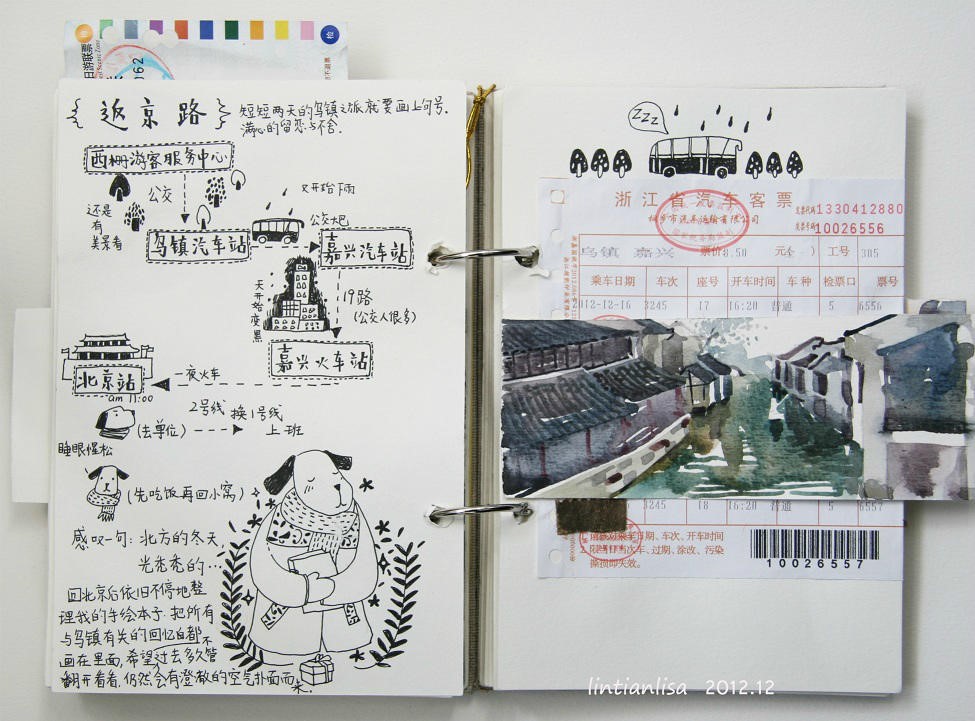 日游联票
检
062
{ 返京路 }
短短两天的乌镇之旅就要画上句号.
满心的留恋与不舍.
西栅游客服务中心
公交
还是
有
美景看
又开始下雨
乌镇汽车站
公交大巴
嘉兴汽车站
天开始变黑
19路
(公交人很多)
嘉兴火车站
北京站
一夜火车
am 11:00
2号线 换1号线
(去单位)
上班
睡眼惺松
(先吃饭再回小窝)
感叹一句: 北方的冬天
光秃秃的...
回北京后依旧不停地整
理我的手绘本子.把所有
与乌镇有关的回忆白都不
画在里面,希望过去多久管
翻开看看.仍然会有澄澈的空气扑面而
来.
ZZZ
浙江省汽车客票
桐乡市汽车运输有限公司
发票代码1330412880
发票号码10026556
乌镇 嘉兴 票价8.50 元( ) 工号 305
乘车日期 车次 座号 开车时间 车种 检票口 票号
2012-12-16 3245 17 16:20 普通 5 6556
3245 18 16:20 普通 5 6557
日期、车次、开车时间
2. 限当日当次车、过期、涂改、污染
撕损即失效。
10026557
lintianlisa 2012.12